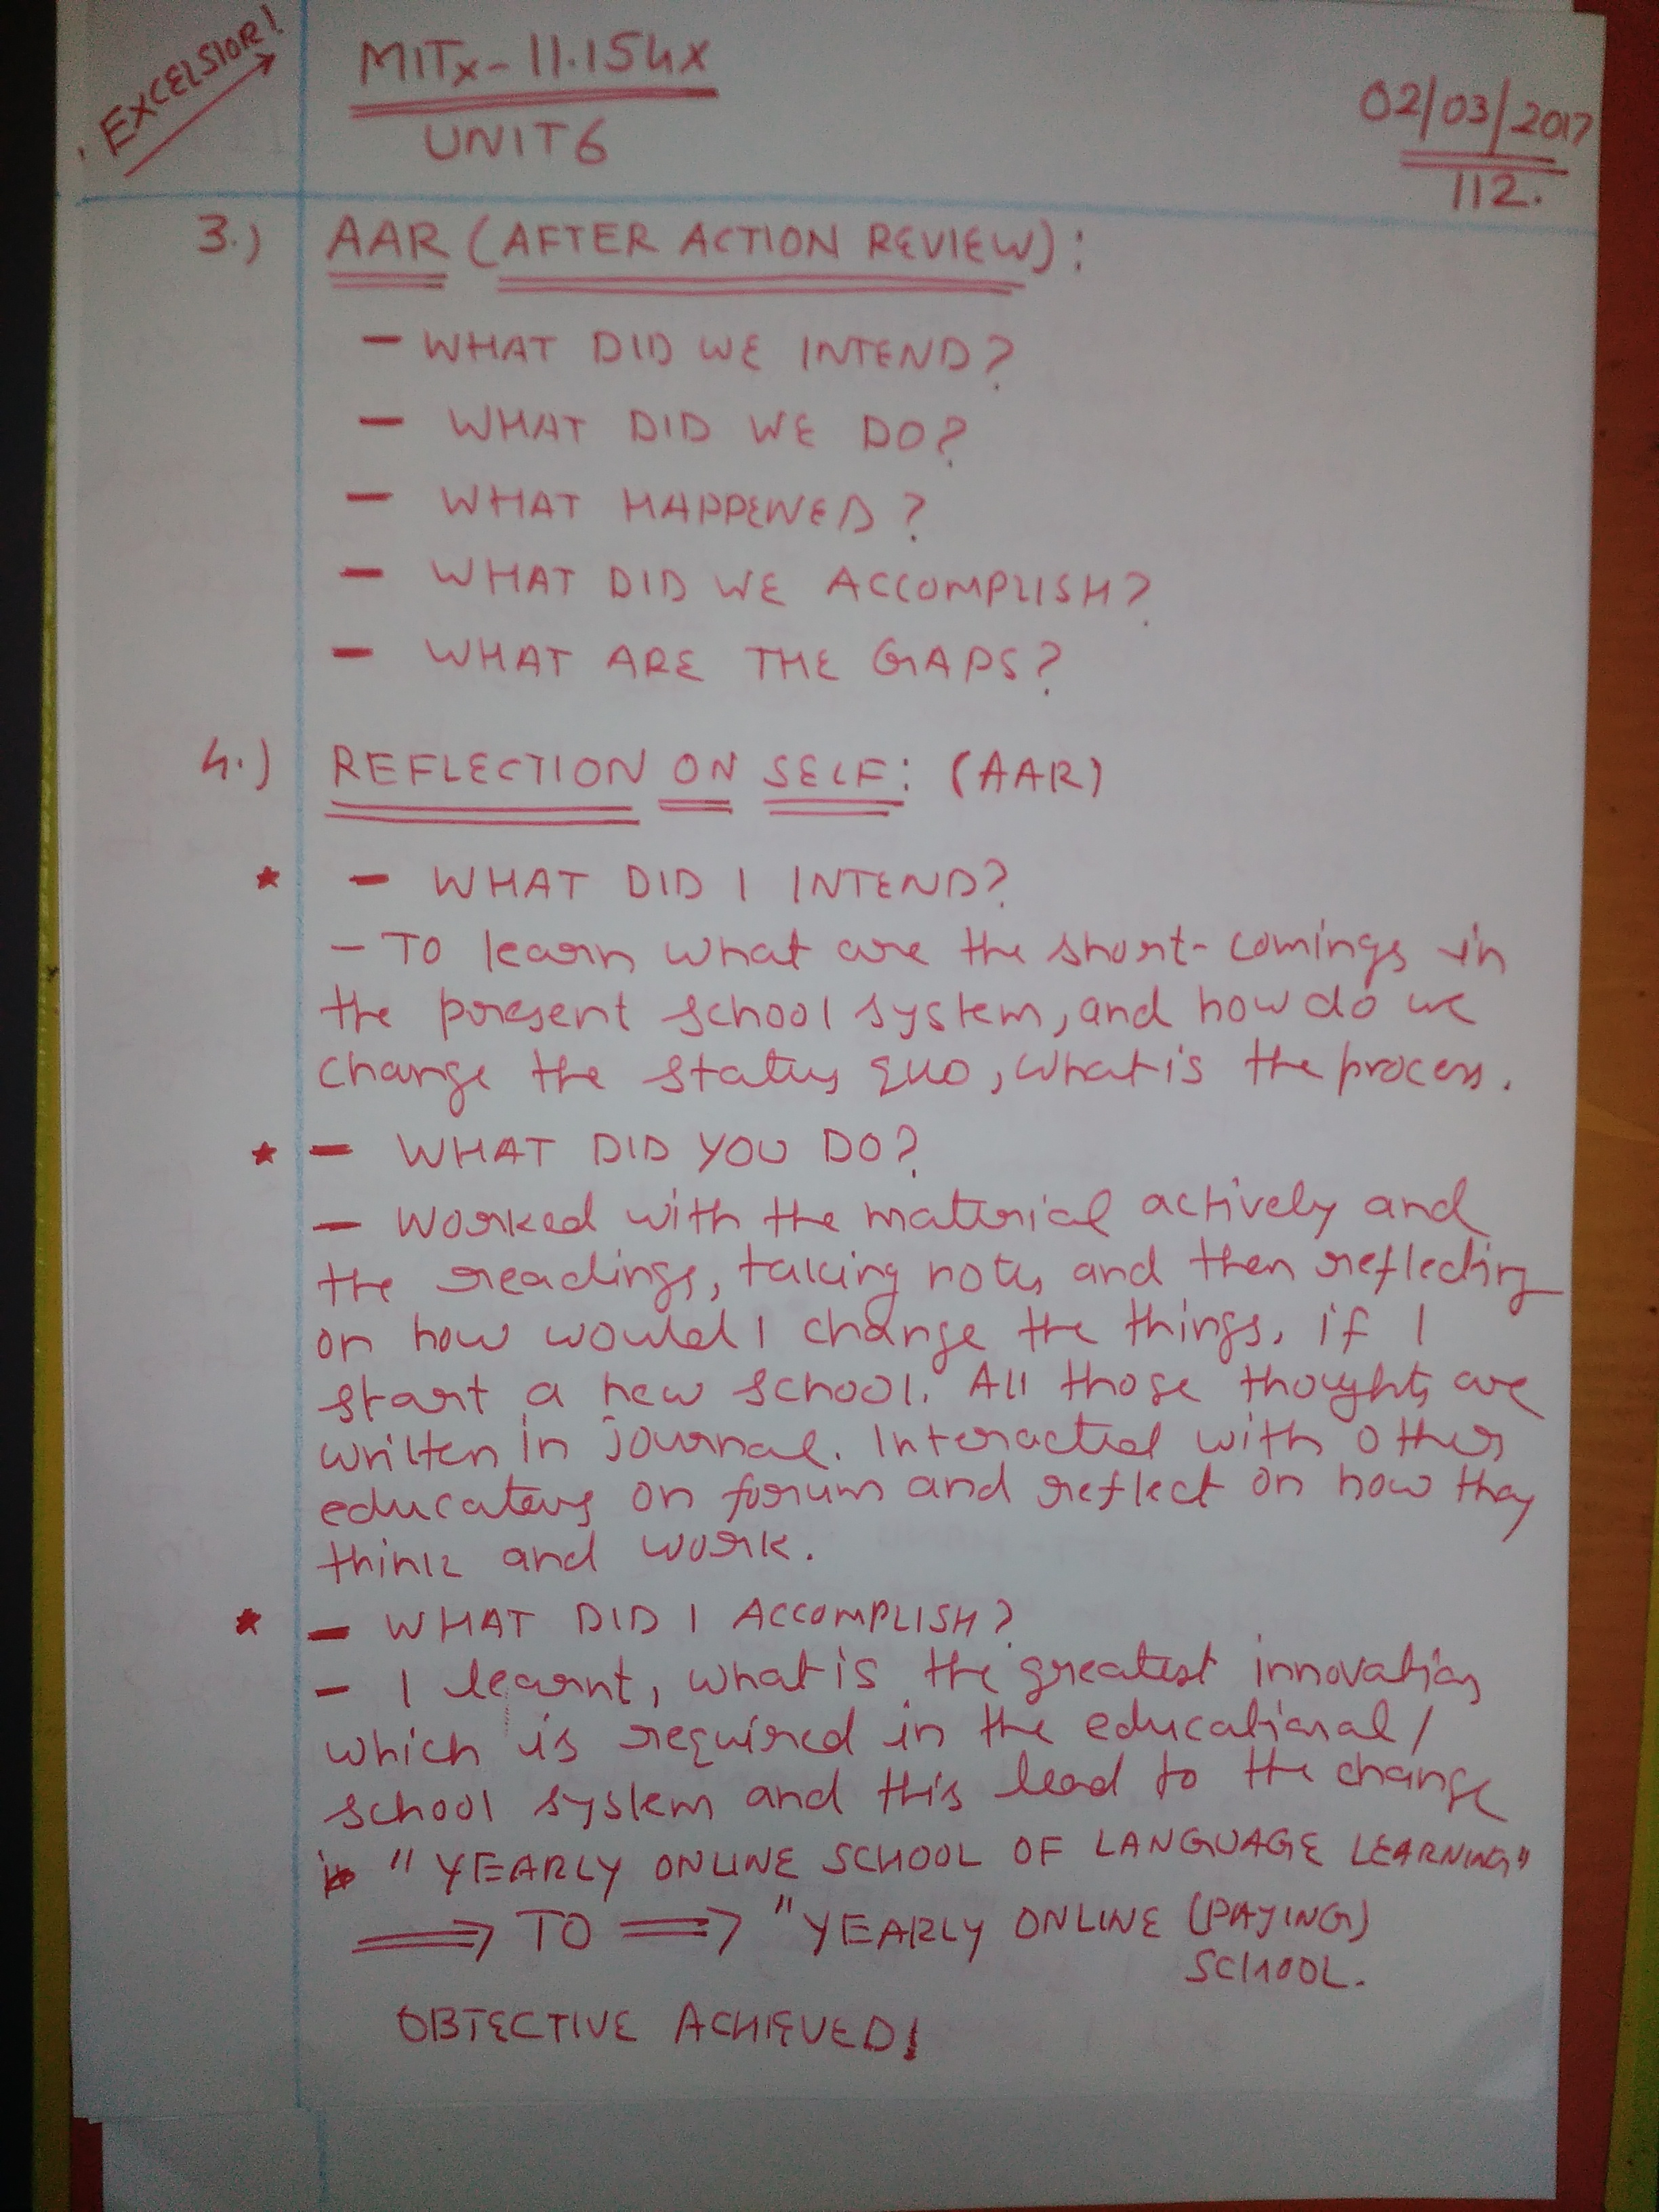 EXCELSIOR!
MITx-11.154x
UNIT 6
02/03/2017
112.
3.) AAR (AFTER ACTION REVIEW):
- WHAT DID WE INTEND?
- WHAT DID WE DO?
- WHAT HAPPENED?
- WHAT DID WE ACCOMPLISH?
- WHAT ARE THE GAPS?
4.) REFLECTION ON SELF: (AAR)
* - WHAT DID I INTEND?
- TO learn what are the short-comings in
the present school system, and how do we
change the status quo, what is the process.
* - WHAT DID YOU DO?
- Worked with the material actively and
the readings, taking notes and then reflecting
on how would I change the things, if I
start a new school. All those thoughts are
written in journal. Interacted with others
educators on forum and reflect on how they
think and work.
* - WHAT DID I ACCOMPLISH?
- I learnt, what is the greatest innovation
which is required in the educational/
school system and this lead to the change
in "YEARLY ONLINE SCHOOL OF LANGUAGE LEARNING"
⟹ TO ⟹ "YEARLY ONLINE (PAYING)
SCHOOL.
OBJECTIVE ACHIEVED!